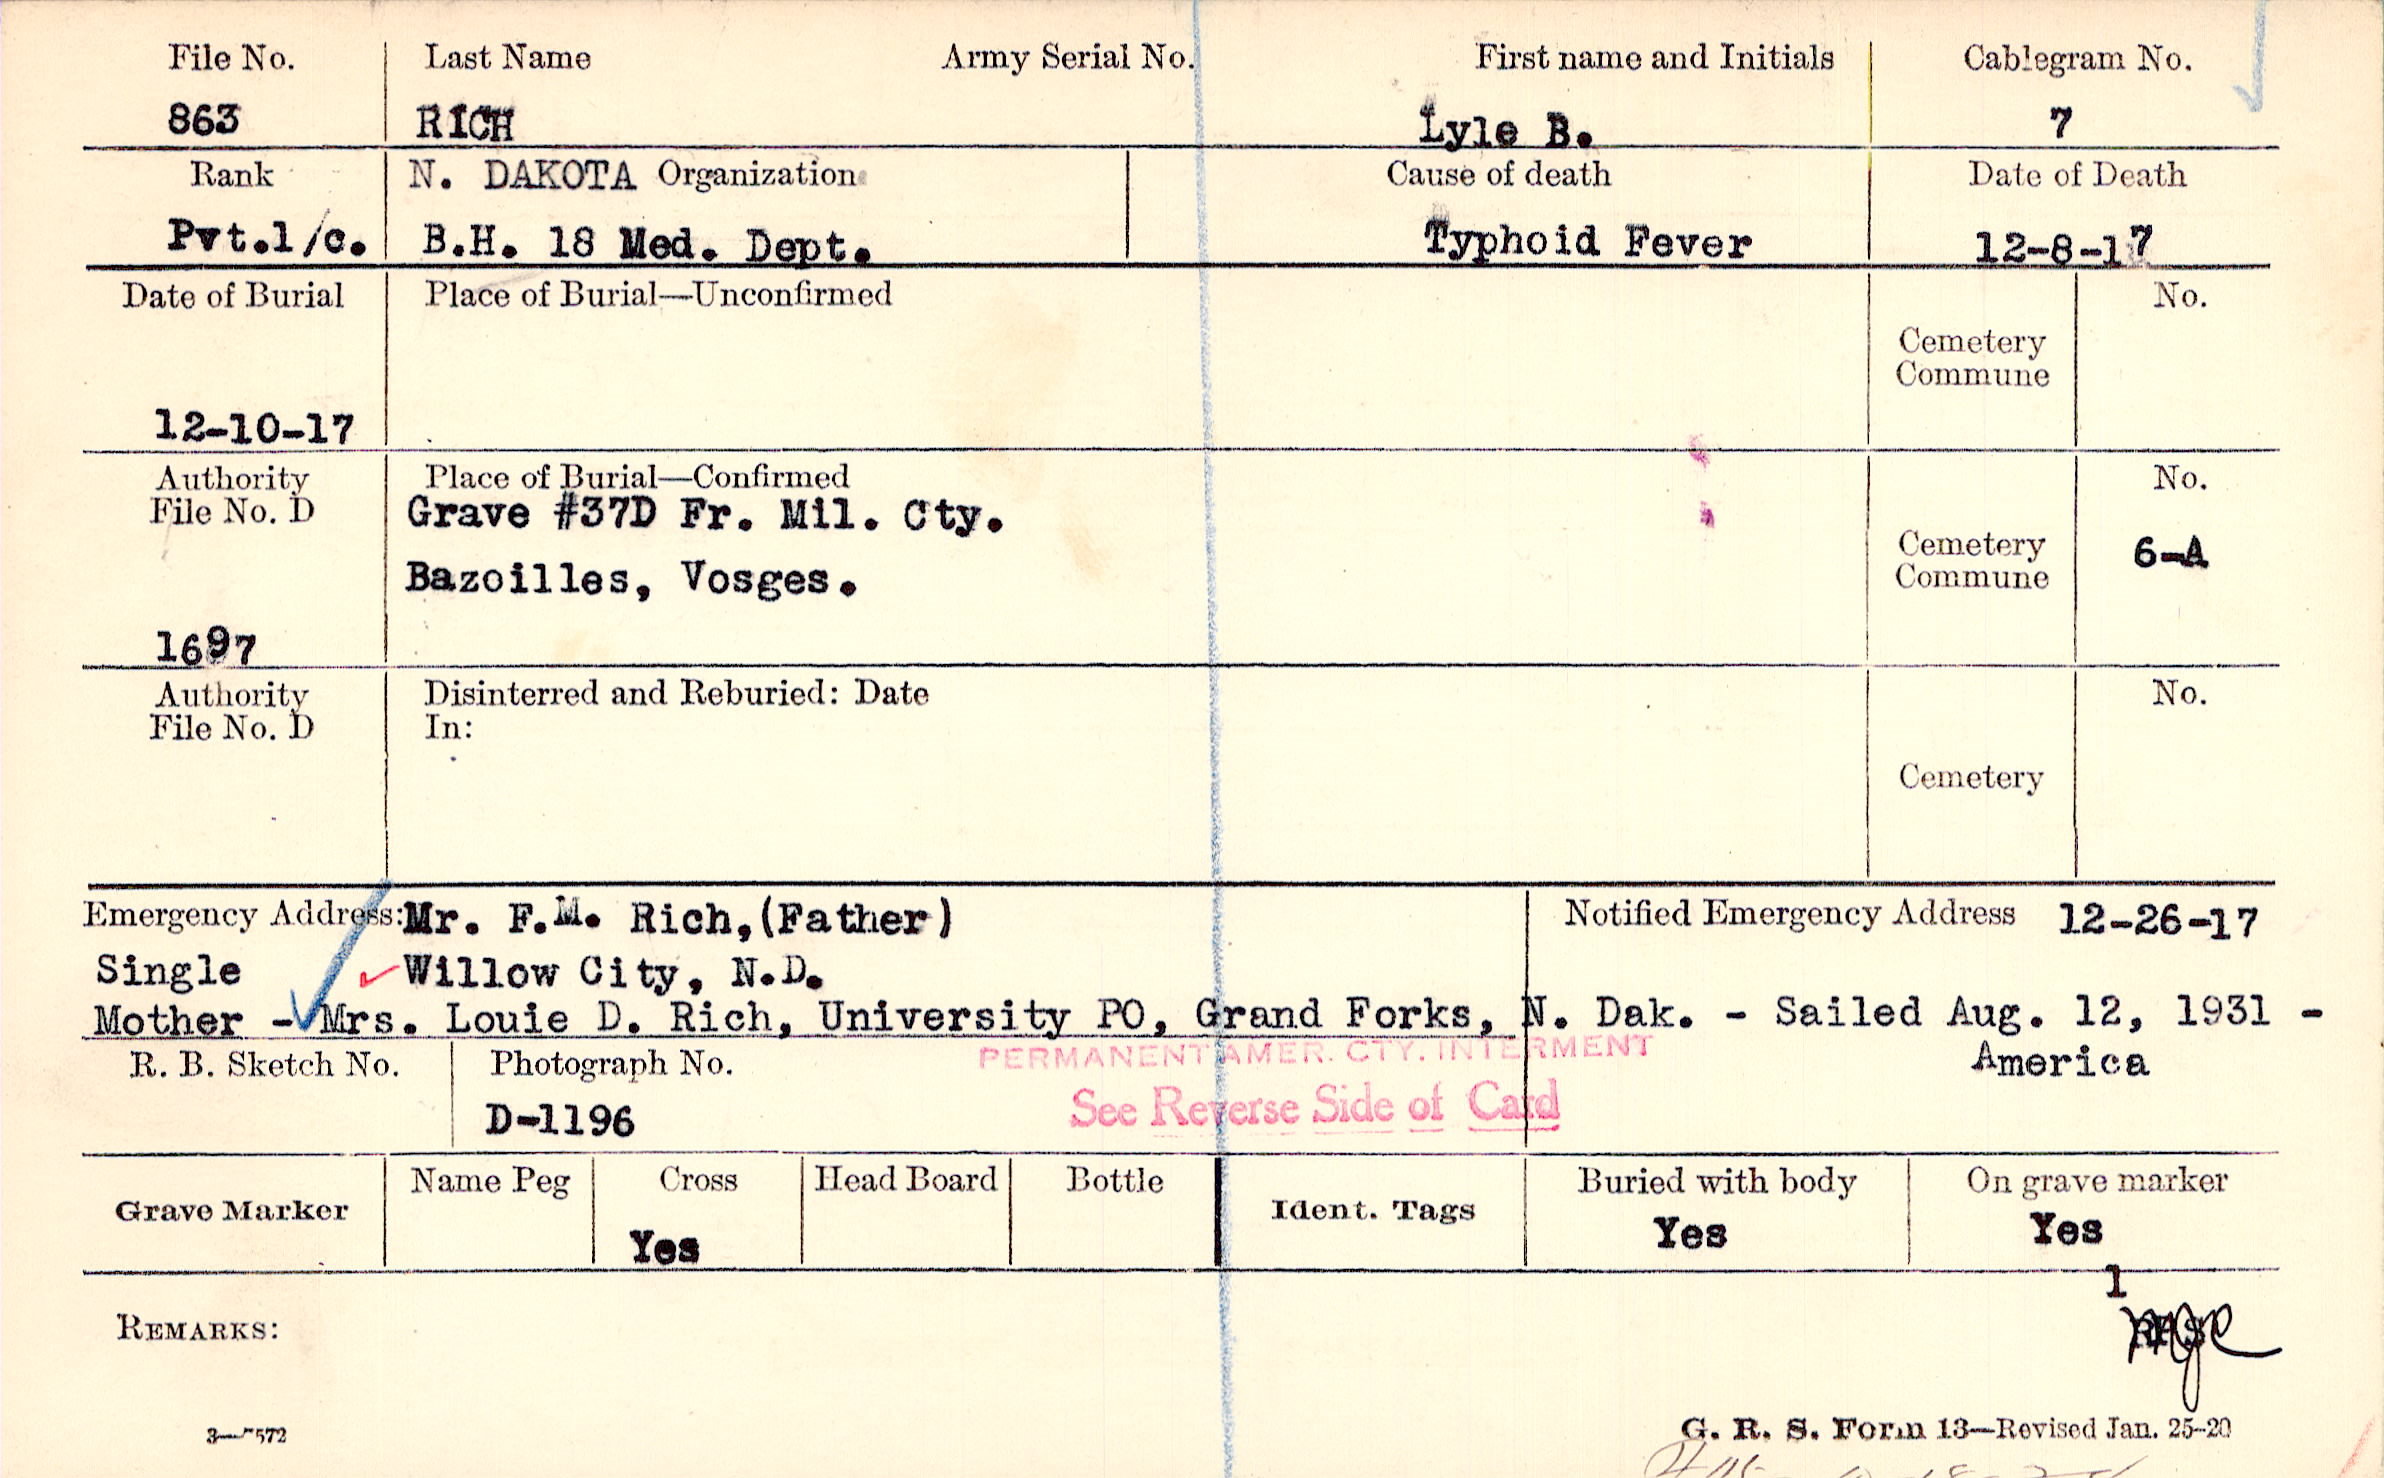 File No. Last Name Army Serial No. First name and Initials Cablegram No.
863 RICH Lyle B. 7
Rank N. DAKOTA Organization Cause of death Date of Death
Pvt.1/c. B.H. 18 Med. Dept. Typhoid Fever 12-8-17
Date of Burial Place of Burial—Unconfirmed No.
Cemetery
Commune
12-10-17
Authority Place of Burial—Confirmed No.
File No. D Grave #37D Fr. Mil. Cty.
Cemetery 6-A
Commune
Bazoilles, Vosges.
1697
Authority Disinterred and Reburied: Date No.
File No. D In:
Cemetery
Emergency Address: Mr. F.M. Rich,(Father) Notified Emergency Address 12-26-17
Single Willow City, N.D.
Mother - Mrs. Louie D. Rich, University PO, Grand Forks, N. Dak. - Sailed Aug. 12, 1931 -
America
PERMANENT AMER. CTY. INTERMENT
R. B. Sketch No. Photograph No.
D-1196 See Reverse Side of Card
Grave Marker Name Peg Cross Head Board Bottle Ident. Tags Buried with body On grave marker
Yes Yes Yes
1
REMARKS:
G. R. S. Form 13—Revised Jan. 25-20